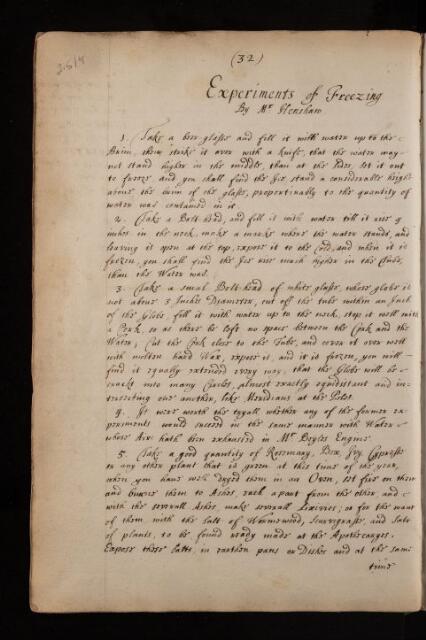 (32)
Experiments of Freezing
By Mr Henshaw
1. Take a beer glasse and fill it with water up to the
Brim, then strike it over with a knife, that the water may
not stand higher in the middle, than at the sides, set it out
to freeze and you shall find the Ice, stand a considerable height
above the brim of the glasse, proportionally to the quantity of
water was contained in it.
2. Take a Bolt head, and fill it with water till it rise 9
inches in the neck, make a marke where the water stands, and
leaving it open at the top, expose it to the Cold, and when it is
frozen, you shall find the Ice rise much higher in the Tube,
than the Water was.
3. Take a smal Bolt-head of white glasse, whose globe is
not above 3 Inches Diameter, cut off the tube within an Inch
of the Globe, fill it with water up to the neck, stop it well with
a Cork, so as there be left no space between the Cork and the
Water; Cut the Cork close to the Tube, and cover it over well
with molten hard Wax, expose it, and it is frozen, you will
find it equally extended every way, that the Globe will be
crackt into many Circles, almost exactly equidistant and in-
tersecting one another, like Meridians at the Poles.
4. It were worth the tryall whether any of the former ex-
periments would succeed in the same manner with Water
whose Air hath been exhausted in Mr Boyles Engine
5. Take a good quantity of Rosemary, Box, Ivy, Cypresse
or any other plant that is green at this time of the year,
when you have well dryed them in an Oven, set fire on them
and burne them to Ashes, each apart from the other and
with the severall Ashes, make severall Lixivies; or for the want
of them with the salt of Wormwood, Scurvigrasse, and salts
of plants, to be found ready made at the Apothecaryes.
Expose these salts, in earthen pans or Dishes and at the same
time